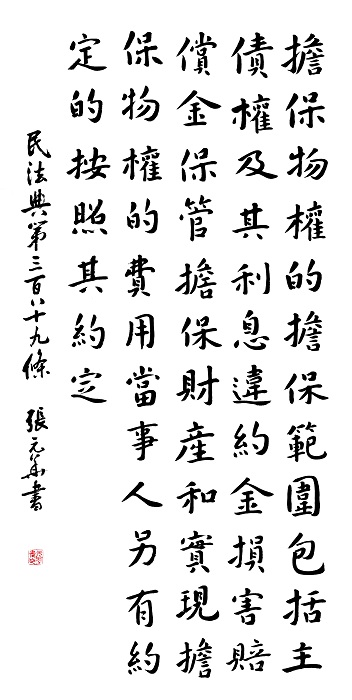 擔保物權的擔保範圍包括主
債權及其利息違約金損害賠
償金保管擔保財産和實現擔
保物權的費用當事人另有約
定的按照其約定
民法典第三百八十九條 張元華書